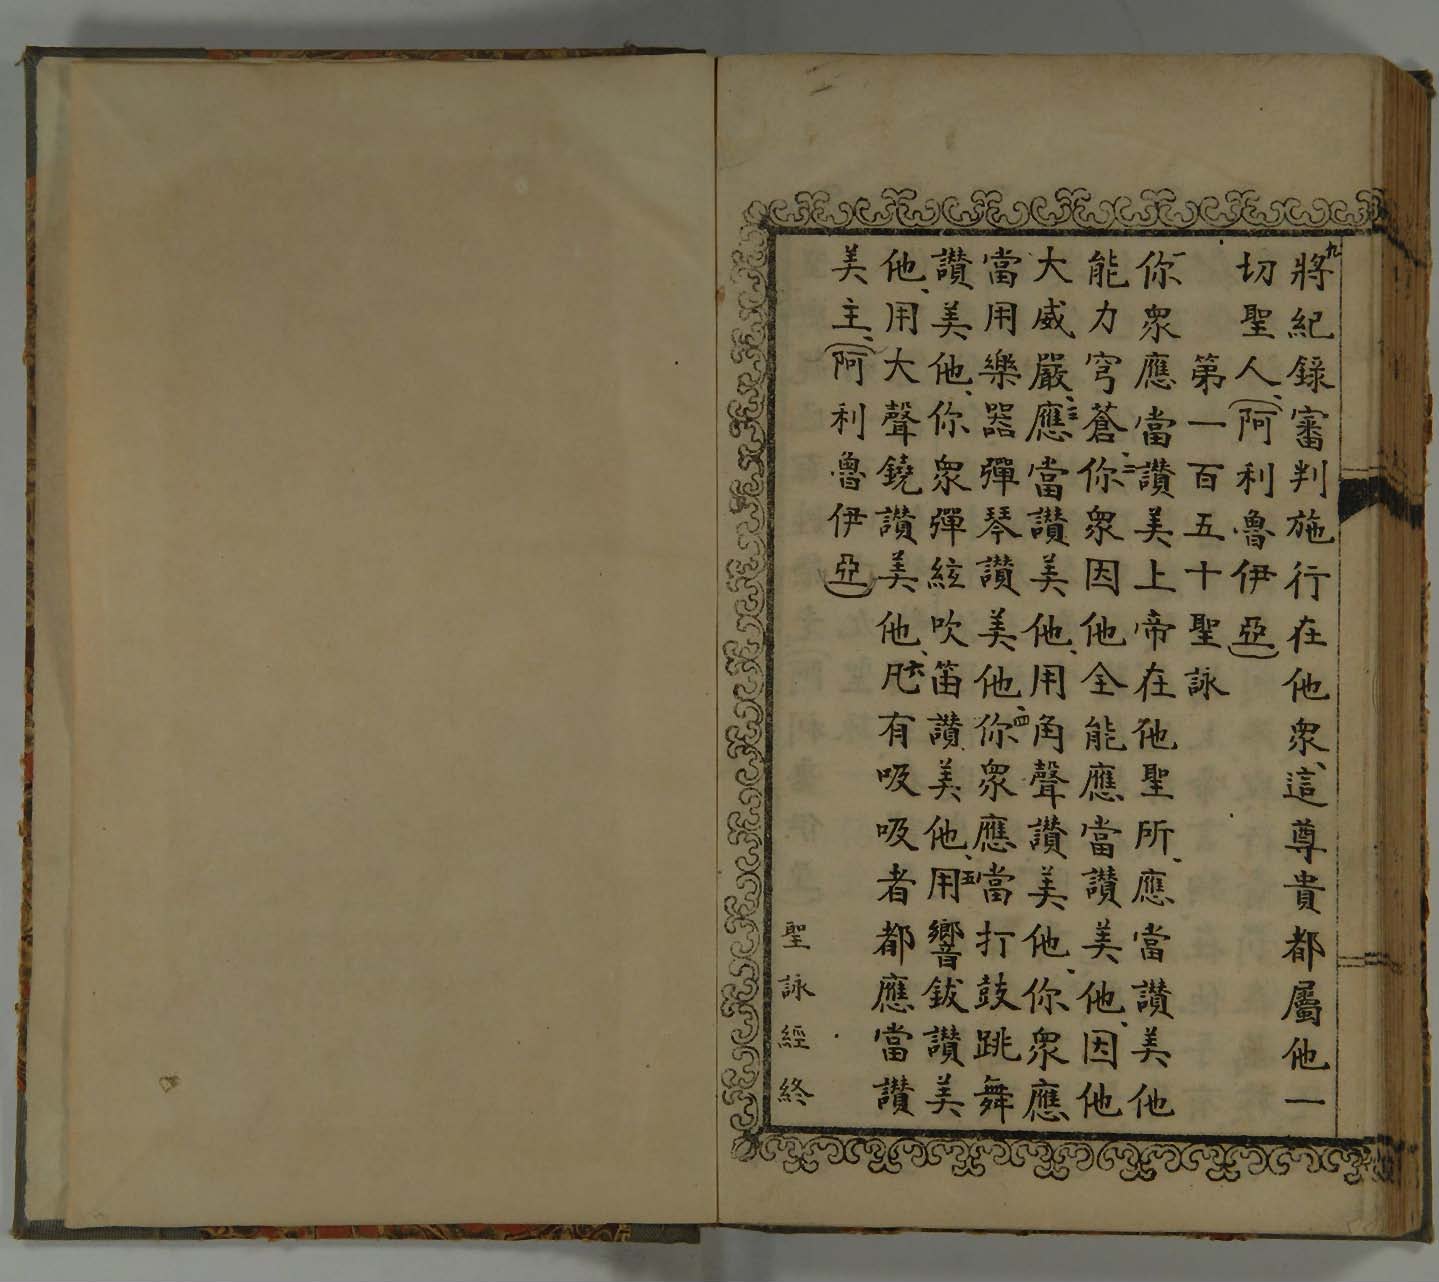 九將紀錄審判施行在他衆、這尊貴都屬他一
切聖人、(阿利魯伊亞)
第一百五十聖詠
一你衆應當讃美上帝在他聖所、應當讃美他
能力穹蒼、二你衆因他全能應當讃美他、因他
大威嚴、三應當讃美他、用角聲讃美他、你衆應
當用樂器彈琴讃美他、四你衆應當打鼓跳舞
讃美他、你衆彈絃吹笛讃美他、五用響鈸讃美
他、用大聲鐃讃美他、六凡有吸吸者都應當讃
美主、(阿利魯伊亞)
聖詠經終